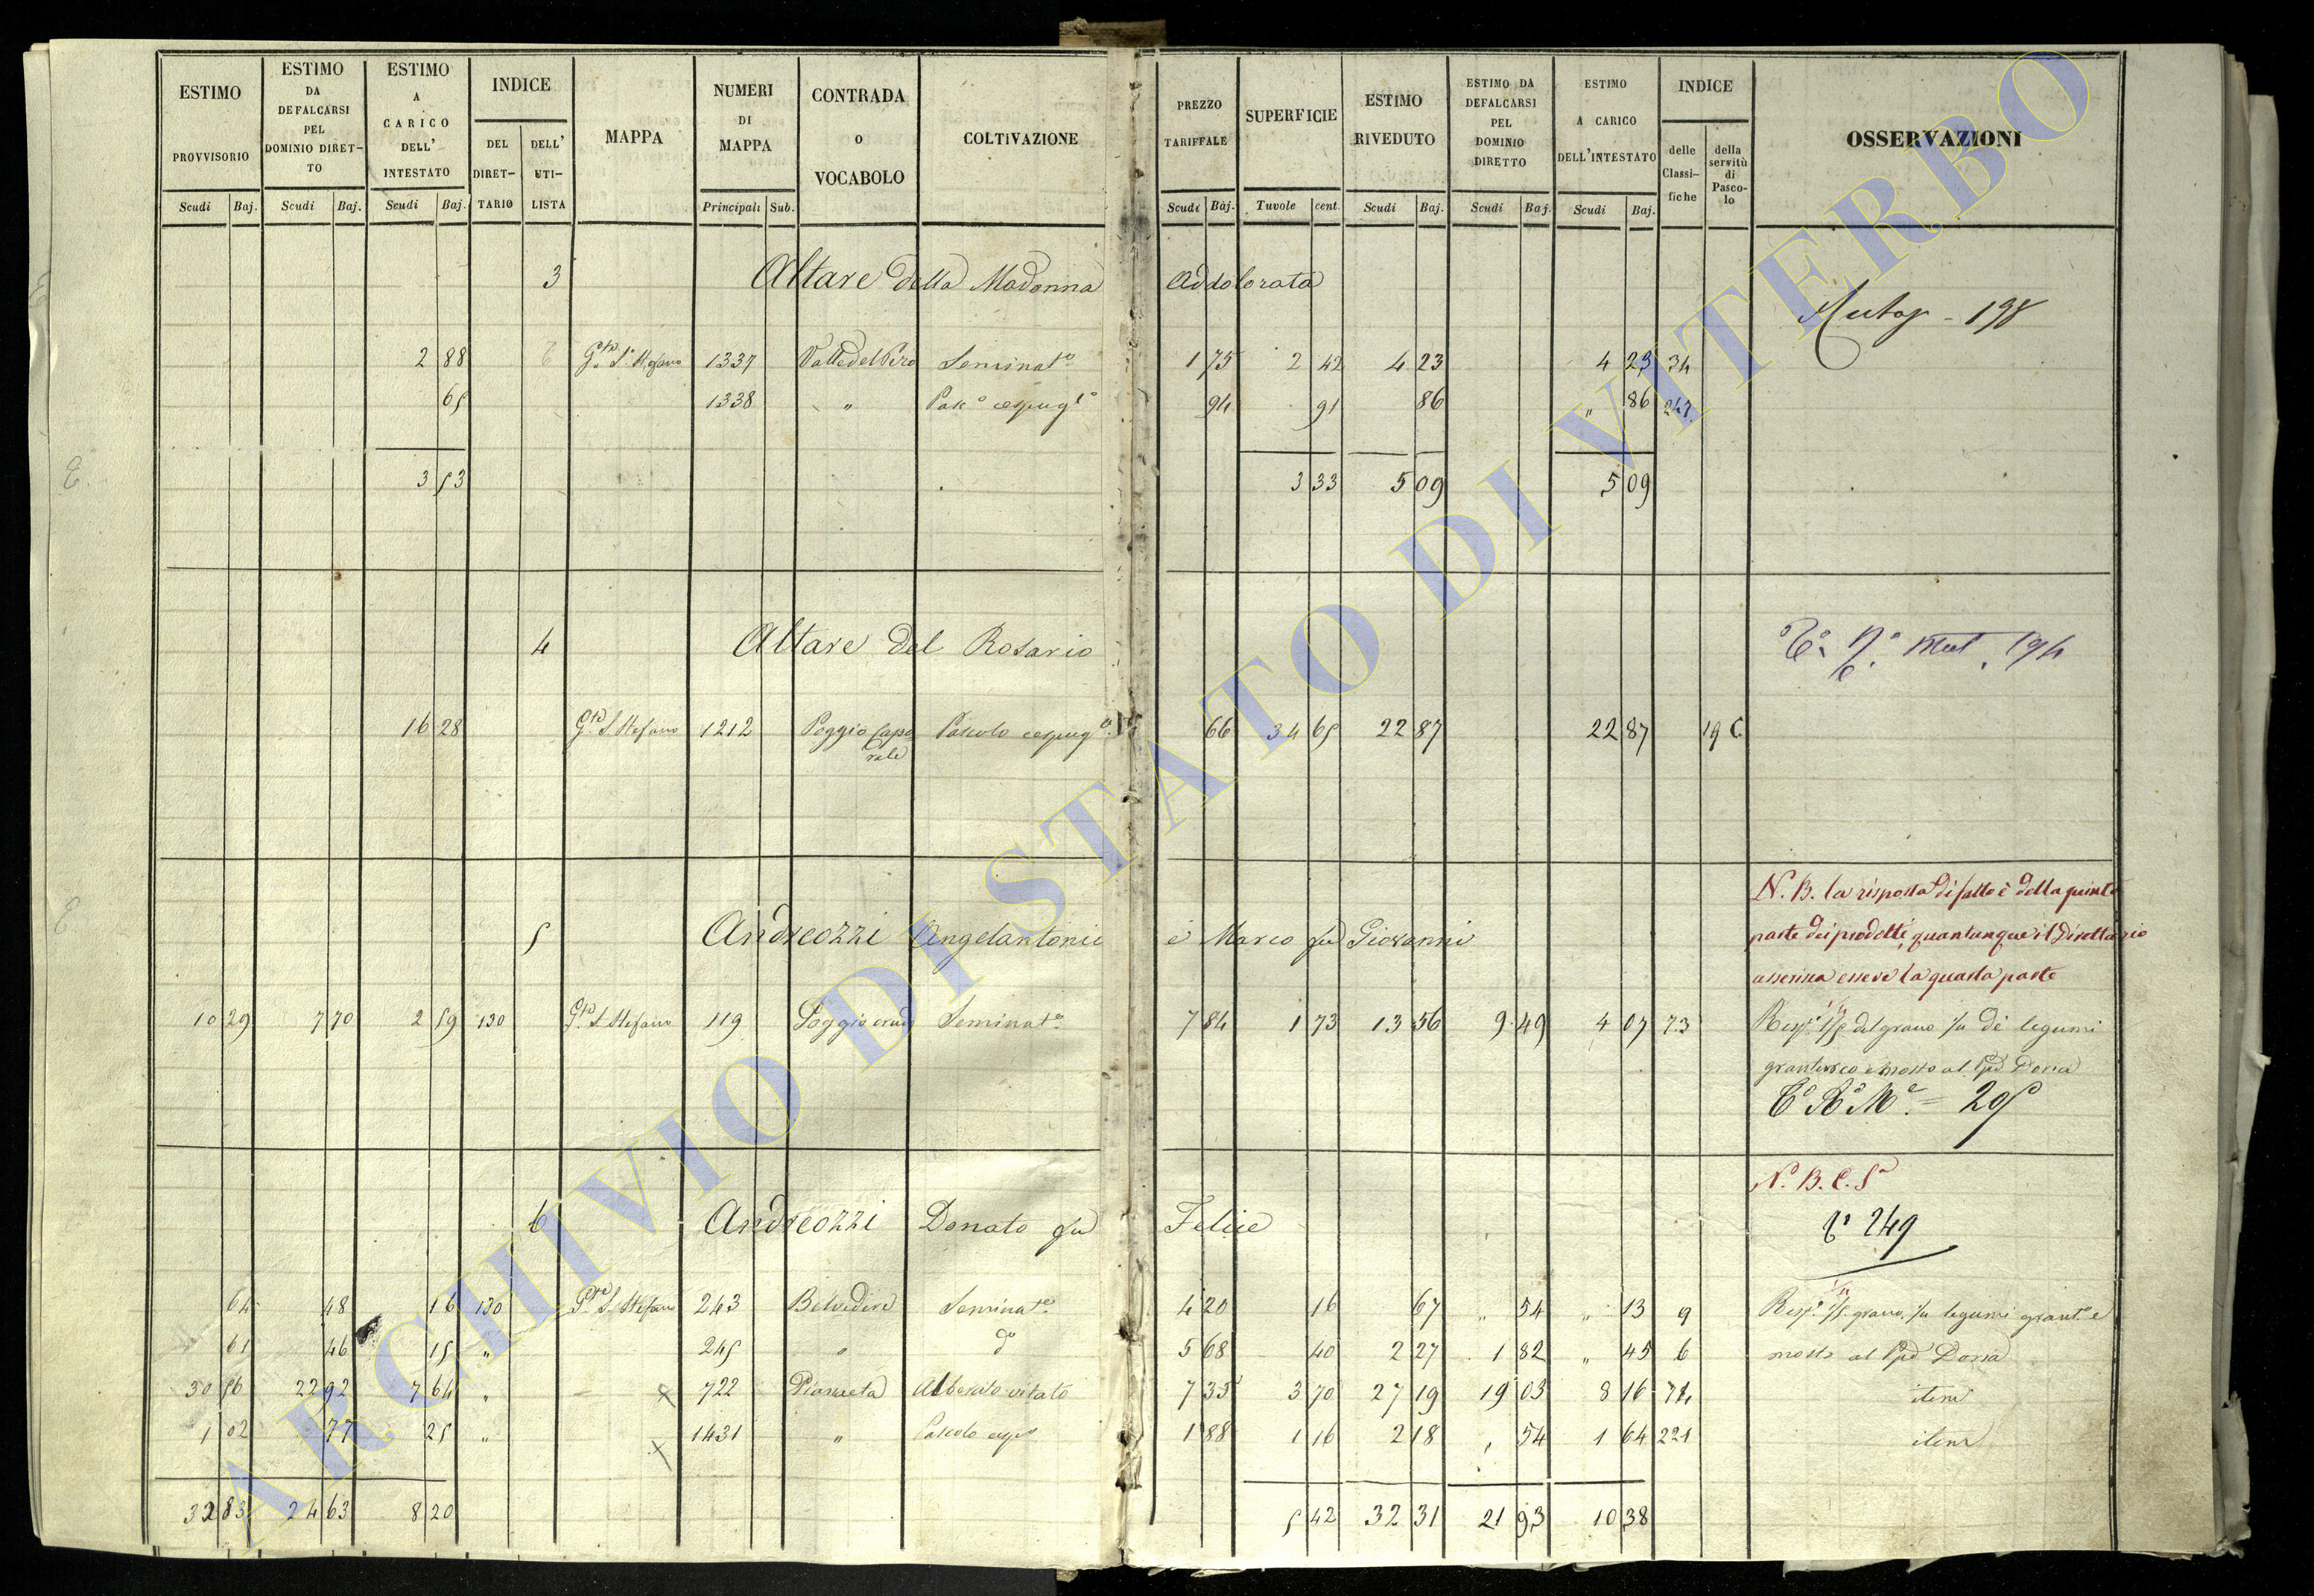 ESTIMO PROVVISORIO | ESTIMO DA DEFALCARSI PEL DOMINIO DIRET-TO | ESTIMO A CARICO DELL' INTESTATO | INDICE DEL DIRET-TARIO | DELL' UTI-LISTA | MAPPA | NUMERI DI MAPPA | CONTRADA o VOCABOLO | COLTIVAZIONE | PREZZO TARIFFALE | SUPERFICIE | ESTIMO RIVEDUTO | ESTIMO DA DEFALCARSI PEL DOMINIO DIRETTO | ESTIMO A CARICO DELL'INTESTATO | INDICE delle Classi-fiche | della servitù di Pasco-lo | OSSERVAZIONI
Scudi Baj. Scudi Baj. Scudi Baj. Principali Sub. Scudi Baj. Tavole cent. Scudi Baj. Scudi Baj. Scudi Baj.
3 Altare della Madonna Addolorata
198
2 88 S. Stefano 1337 Valle del Pero Seminat.o 1 75 2 42 4 23 4 23 34
65 1338 " Pas.o cespugl.o 94 91 86 " 86 247
3 53 3 33 5 09 5 09
4 Altare del Rosario Mut. 194
16 28 G.to S. Stefano 1212 Poggio Capo rale Pascolo cespug.o 66 34 65 22 87 22 87 19 C
N.B. la risposta di fatto è della quinta
5 Andreozzi Angelantonio e Marco fu Giovanni parte dei prodotti, quantunque il Direttario
asserisca essere la quarta parte
10 29 7 70 2 59 130 G.to S. Stefano 119 Seminat.o 7 84 1 73 13 56 9 49 4 07 73 Risp. 1/5 del grano di legumi
granturco e mosto al Doria
295
N.B. C. S.a
6 Andreozzi Donato fu Felice 249
64 48 16 130 G.to S. Stefano 243 Belvedere Seminat.o 4 20 16 67 " 54 " 13 9 Risp. 1/5 grano, legumi grant.o e
61 46 15 " 245 " d.o 5 68 40 2 27 1 82 " 45 6 mosto al Doria
30 56 22 92 7 64 " x 722 Pianaeta Alberato vitato 7 35 3 70 27 19 19 03 8 16 74 item
1 02 77 25 " x 1431 " Pascolo 1 88 1 16 2 18 " 54 1 64 221 item
32 83 24 63 8 20 5 42 32 31 21 93 10 38
ARCHIVIO DI STATO DI VITERBO